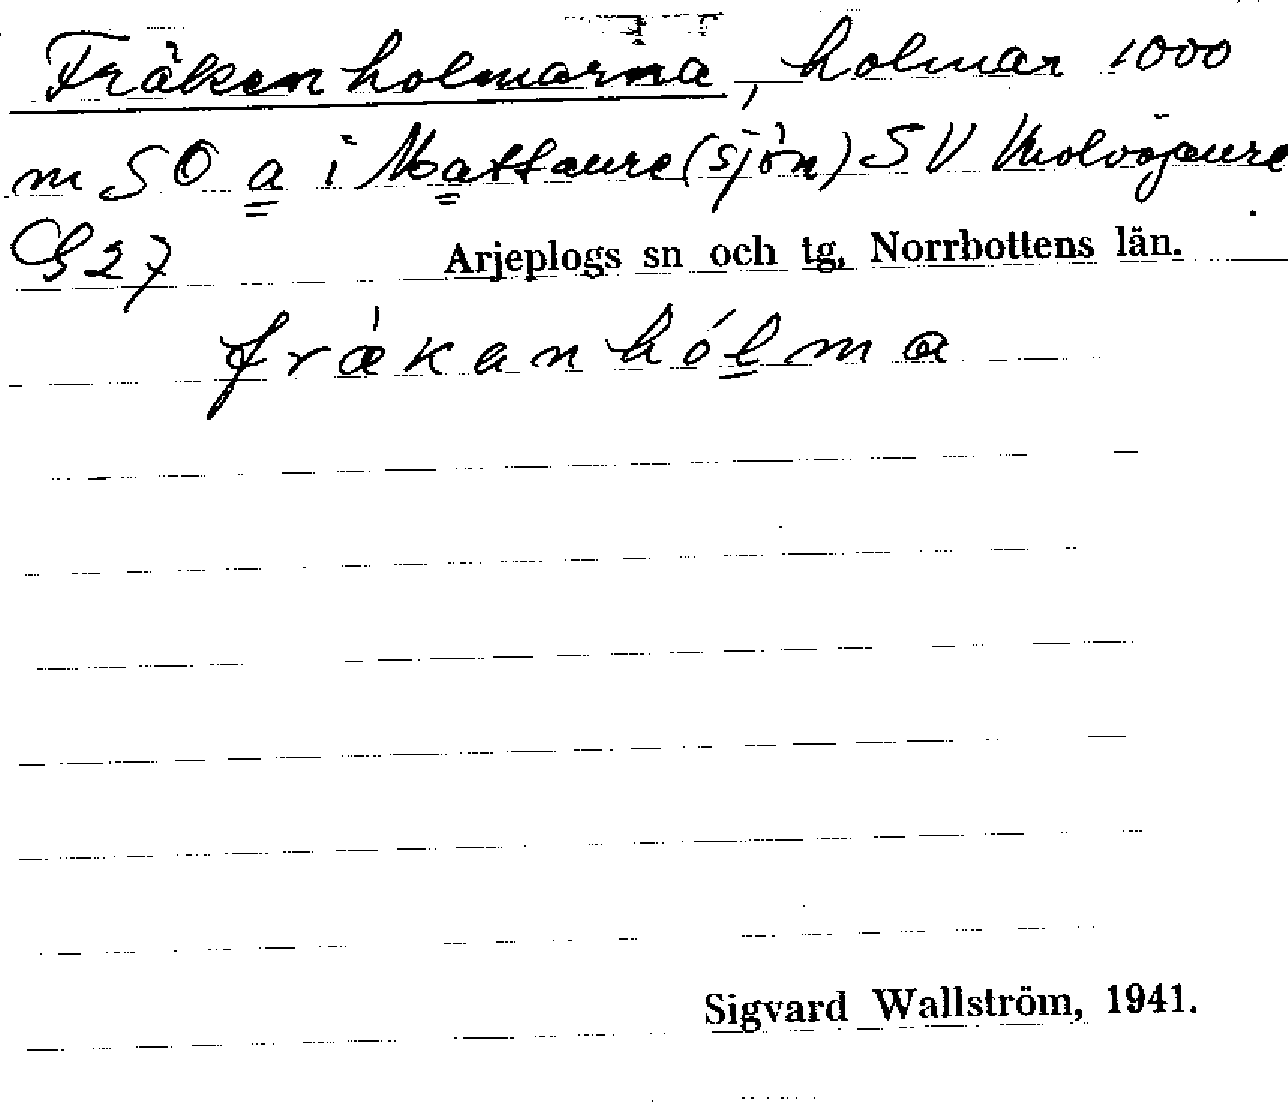 Fräkenholmarna, holmar 1000
m SO a i Mattaure (sjön) SV
G 27 Arjeplogs sn och tg, Norrbottens län.
frækanhólma
Sigvard Wallström, 1941.